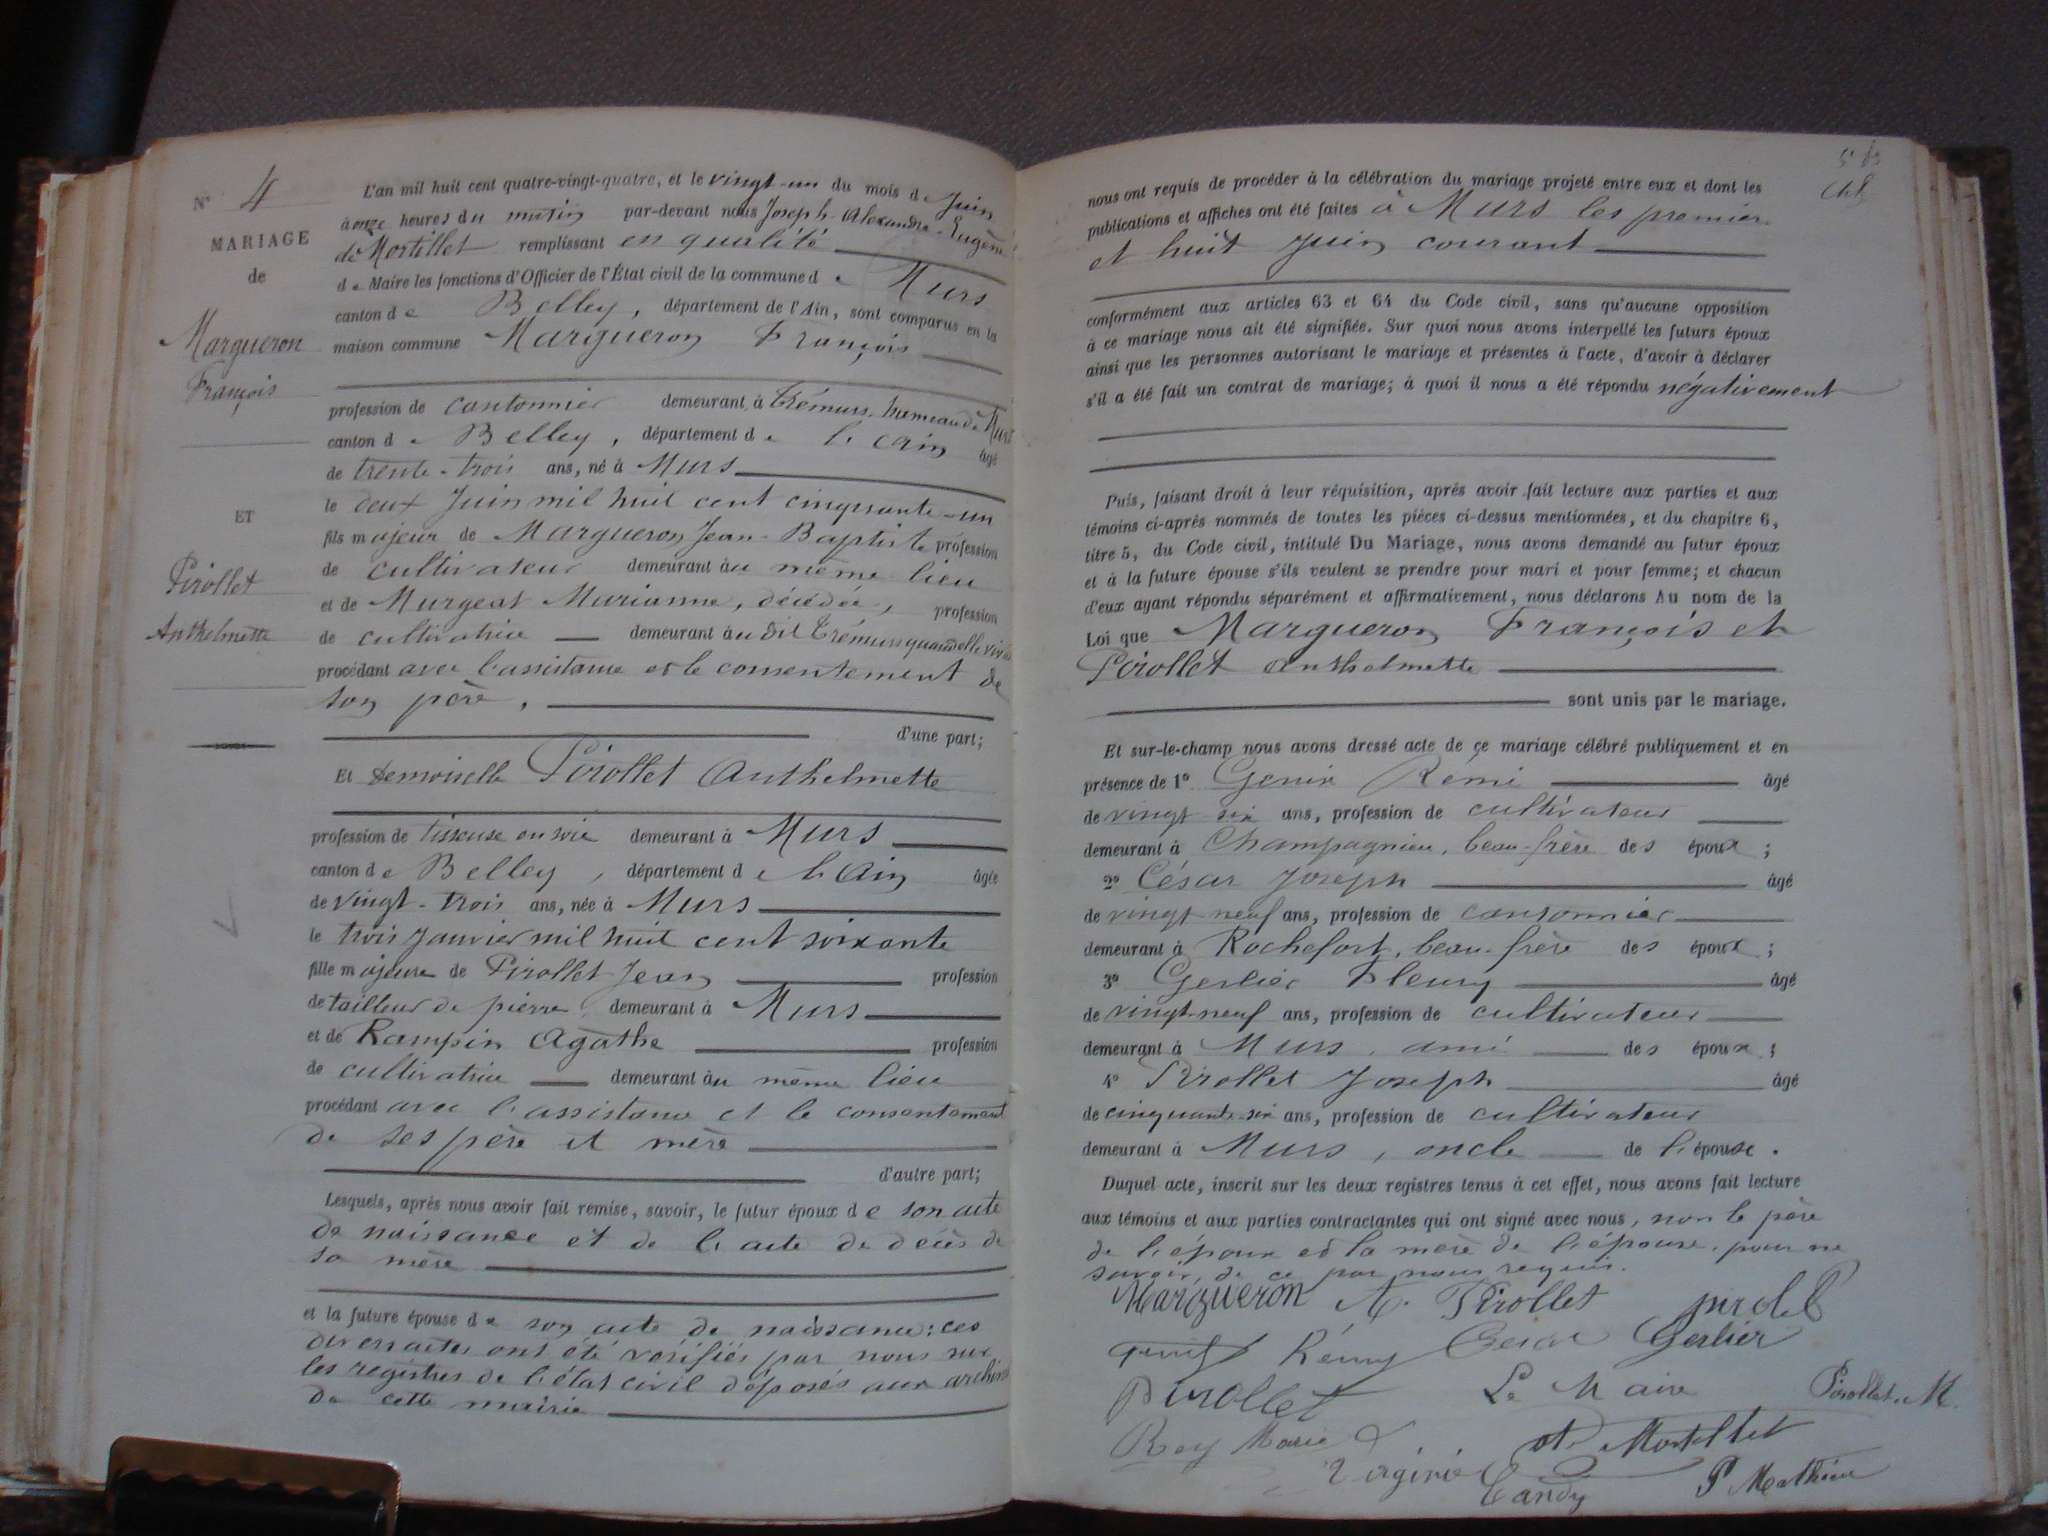 N° 4
MARIAGE
de
Margueron
François
ET
Pirollet
Anthelmette
L'an mil huit cent quatre-vingt-quatre, et le vingt-un du mois de Juin
à onze heures du matin par-devant nous Joseph-Alexandre-Eugène
de Mortillet remplissant en qualité
de Maire les fonctions d'Officier de l'État civil de la commune de Murs
canton de Belley, département de l'Ain, sont comparus en la
maison commune Margueron François
profession de cantonnier demeurant à Trémurs, hameau de Murs
canton de Belley, département de l'Ain âgé
de trente-trois ans, né à Murs
le deux Juin mil huit cent cinquante-un
fils majeur de Margueron Jean-Baptiste profession
de cultivateur demeurant au même lieu
et de Murgeat Marianne, décédée, profession
de cultivatrice demeurant au dit Trémurs quand elle vivait
procédant avec l'assistance et le consentement de
son père,
d'une part;
Et demoiselle Pirollet Anthelmette
profession de tisseuse en soie demeurant à Murs
canton de Belley, département de l'Ain âgée
de vingt-trois ans, née à Murs
le trois janvier mil huit cent soixante
fille majeure de Pirollet Jean profession
de tailleur de pierre, demeurant à Murs
et de Rampin Agathe profession
de cultivatrice demeurant au même lieu
procédant avec l'assistance et le consentement
de ses père et mère
d'autre part;
Lesquels, après nous avoir fait remise, savoir, le futur époux de son acte
de naissance et de l'acte de décès de
sa mère
et la future épouse de son acte de naissance: ces
divers actes ont été vérifiés par nous sur
les registres de l'état civil déposés aux archives
de cette mairie
nous ont requis de procéder à la célébration du mariage projeté entre eux et dont les
publications et affiches ont été faites à Murs les premier
et huit Juin courant
conformément aux articles 63 et 64 du Code civil, sans qu'aucune opposition
à ce mariage nous ait été signifiée. Sur quoi nous avons interpellé les futurs époux
ainsi que les personnes autorisant le mariage et présentes à l'acte, d'avoir à déclarer
s'il a été fait un contrat de mariage; à quoi il nous a été répondu négativement
Puis, faisant droit à leur réquisition, après avoir fait lecture aux parties et aux
témoins ci-après nommés de toutes les pièces ci-dessus mentionnées, et du chapitre 6,
titre 5, du Code civil, intitulé Du Mariage, nous avons demandé au futur époux
et à la future épouse s'ils veulent se prendre pour mari et pour femme; et chacun
d'eux ayant répondu séparément et affirmativement, nous déclarons Au nom de la
Loi que Margueron François et
Pirollet Anthelmette
sont unis par le mariage.
Et sur-le-champ nous avons dressé acte de ce mariage célébré publiquement et en
présence de 1° Genin Rémi âgé
de vingt six ans, profession de cultivateur
demeurant à Champagnieu, beau-frère des époux;
2° César Joseph âgé
de vingt neuf ans, profession de cantonnier
demeurant à Rochefort, beau-frère des époux;
3° Gerlier Fleury âgé
de vingt-neuf ans, profession de cultivateur
demeurant à Murs, ami des époux;
4° Pirollet Joseph âgé
de cinquante-six ans, profession de cultivateur
demeurant à Murs, oncle de l'épouse.
Duquel acte, inscrit sur les deux registres tenus à cet effet, nous avons fait lecture
aux témoins et aux parties contractantes qui ont signé avec nous, non le père
de l'époux et la mère de l'épouse, pour ne
savoir, de ce par nous requis.
Margueron A. Pirollet
Rémy César Gerlier
Pirollet Le Maire Pirollet M
Roy Marie de Mortillet
Virginie Candy P Mathieu